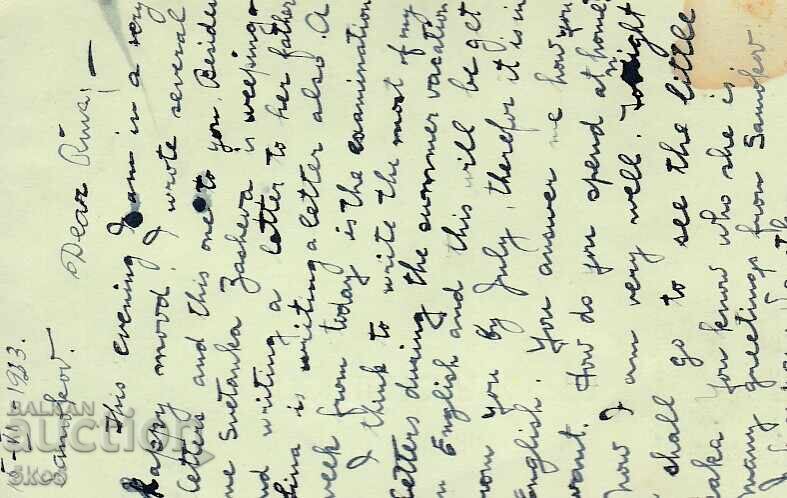 -VI-1933.
Samokov.
Dear Rina, -
This evening I am in a very
happy mood. I wrote several
letters and this one to you. Besides
me Svetanka Zasheva is weeping
and writing a letter to her father
is writing a letter also. A
week from today is the examination
I think to write the most of my
letters during the summer vacation
in English and this will be get
from you by July, therefor it is in
English. You answer me how you
want. How do you spend at home?
now I am very well. Tonight
I shall go to see the little
aka. You know who she is
many greetings from Samokov.
BALKAN
auction